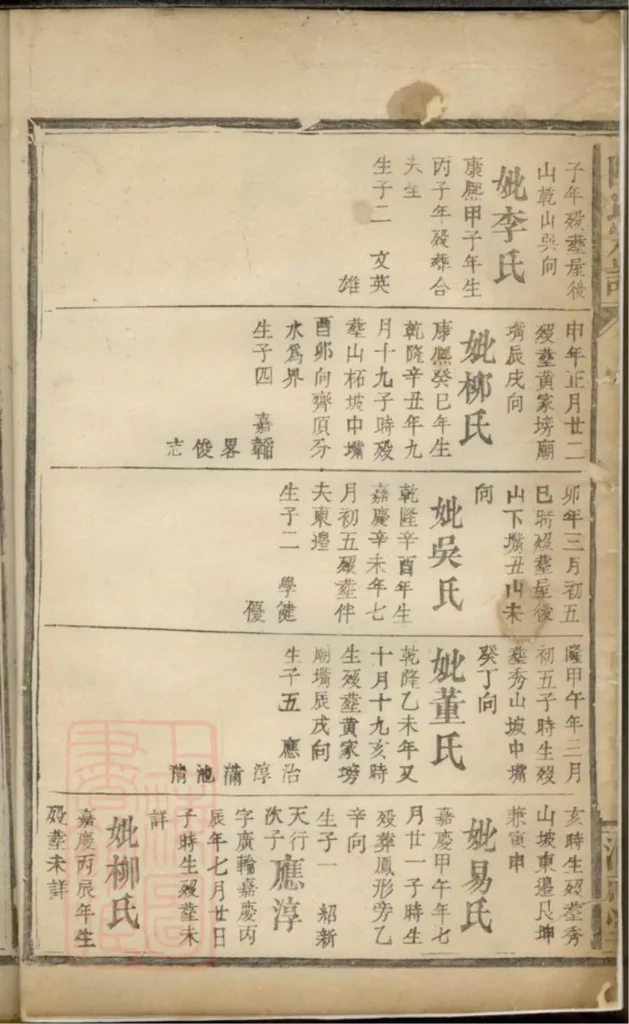 子年殁塟屋後
山乾山巽向
妣李氏
康熙甲子年生
丙子年殁葬合
夫茔
生子二　文英
雄
申年正月廿二
殁塟黄家塝廟
嘴辰戌向
妣柳氏
康熙癸巳年生
乾隆辛丑年九
月十九子時殁
塟山柘坡中嘴
酉卯向齊頂分
水為界
生子四　嘉
畧
俊
志
卯年三月初五
巳時殁塟屋後
山下嘴丑山未
向
妣吳氏
乾隆辛酉年生
嘉慶辛未年七
月初五殁塟伴
夫東邊
生子二　學健
優
隆甲午年三月
初五子時生殁
塟秀山坡中嘴
癸丁向
妣董氏
乾隆乙未年又
十月十九亥時
生殁塟黄家塝
廟嘴辰戌向
生子五　應治
淳
瀟
池
清
亥時生殁塟秀
山坡東邊艮坤
兼寅申
妣易氏
嘉慶甲午年七
月廿一子時生
殁葬鳳形旁乙
辛向
生子一　紹新
天行
次子應淳
字廣輪嘉慶丙
辰年七月廿日
子時生殁塟未
詳
妣柳氏
嘉慶丙辰年生
殁塟未詳